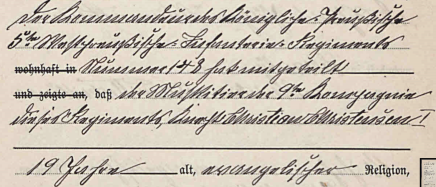 Der Kommandeur des Königlich-Preußische
5ten Westpreußische-Infanterie-Regiments
wohnhaft in Nummer 148 hat mitgeteilt
und zeigte an, daß der Musketier der 9ten Kompagnie
dieses Regiments, Knecht Christian Christensen I
19 Jahre alt, evangelischer Religion,